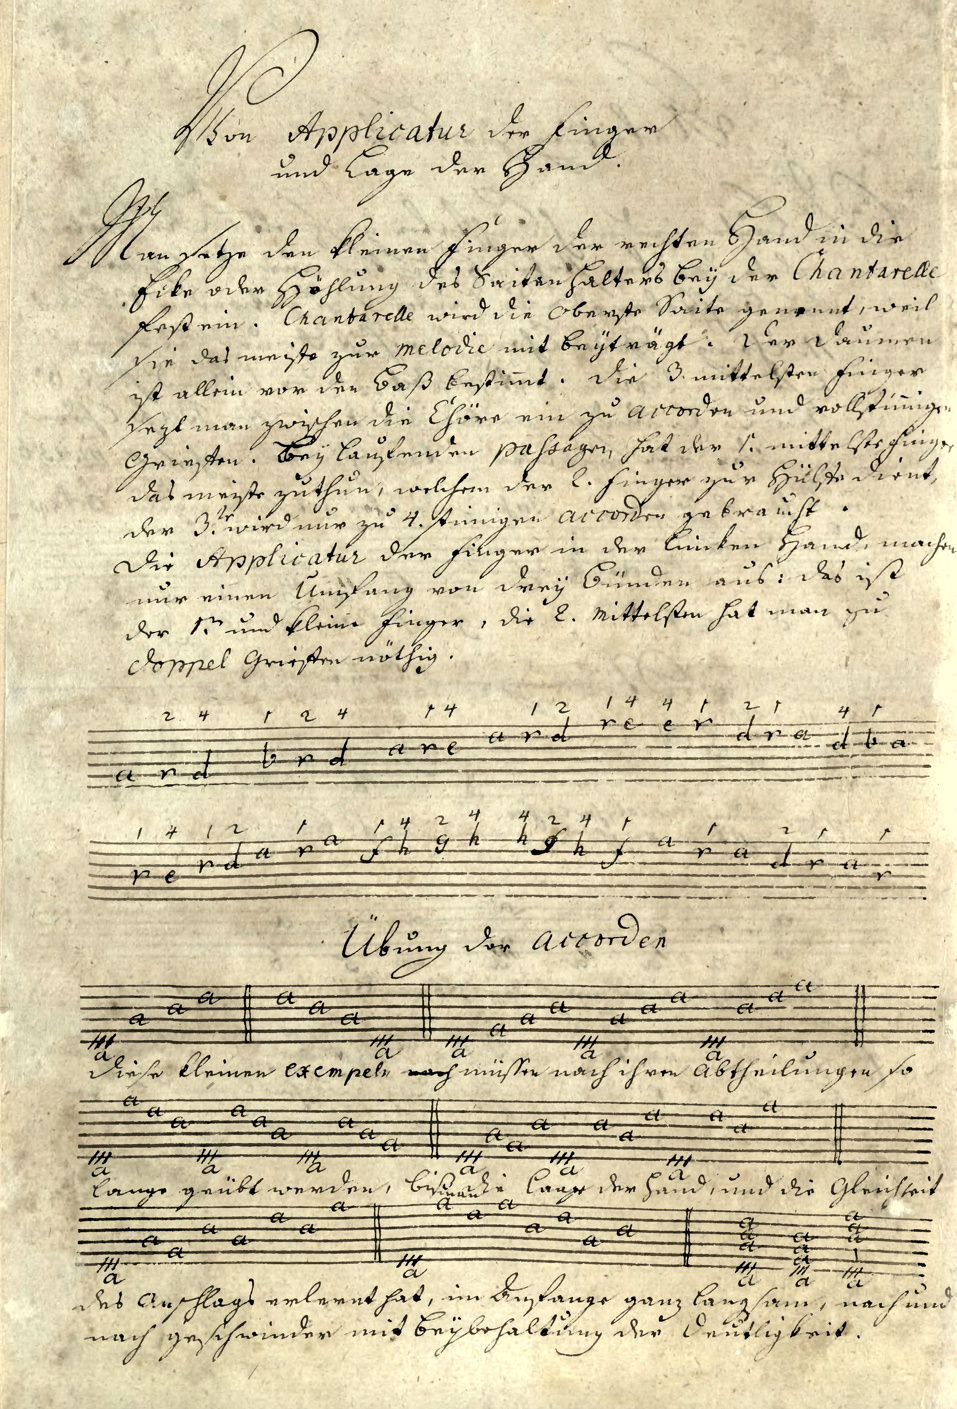 Von Applicatur der Finger
und Lage der Hand.
Man setze den kleinen Finger der rechten Hand in die
Ecke oder Höhlung des Saitenhalters bey der Chantarelle
fest ein. Chantarelle wird die Oberste Saite genennt, weil
sie das meiste zur melodie mit beyträgt. Der Daumen
ist allein vor den Baß bestim̅t. die 3. mittelsten Finger
sezt man zwischen die Chöre ein zu accorden und vollstim̅igen
Grieffen. Bey lauffenden passagen, hat der 1. mittelste Finger
das meiste zuthun, welchem der 2. Finger zur Hülffe dient,
der 3.te wird nur zu 4. stim̅igen accorden gebraucht.
Die Applicatur der Finger in der lincken Hand, machen
nur einen Umfang von drey Bünden aus: das ist
der 1.te und kleine Finger, die 2. Mittelsten hat man zu
doppel Grieffen nöthig.
2 4 1 2 4 1 4 1 2 1 4 4 1 2 1 4 1
a r d b r d a r e a r d r e e r d r a d b a
1 4 1 2 1 1 4 2 4 4 2 4 1 1 2 1 1
r e r d a r a f h g h h g h f a r a d r a r
Übung der accorden
diese kleinen exempeln müssen nach ihren Abtheilungen so
lange geübt werden, biß man die Lage der Hand, und die Gleichheit
des Anschlags erlernt hat, im Anfange ganz langsam, nach und
nach geschwinder mit Beybehaltung der Deutligkeit.